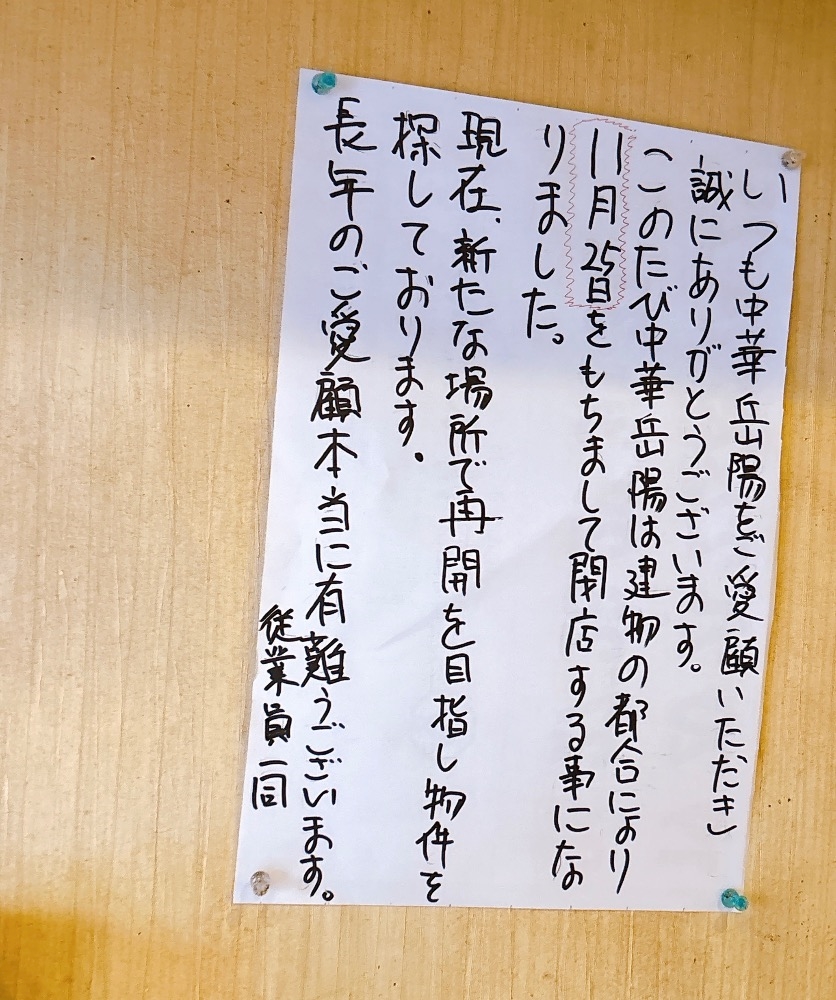 いつも中華岳陽をご愛顧いただき
誠にありがとうございます。
このたび中華岳陽は建物の都合により
11月25日をもちまして閉店する事にな
りました。
現在、新たな場所で再開を目指し物件を
探しております。
長年のご愛顧本当に有難うございます。
従業員一同